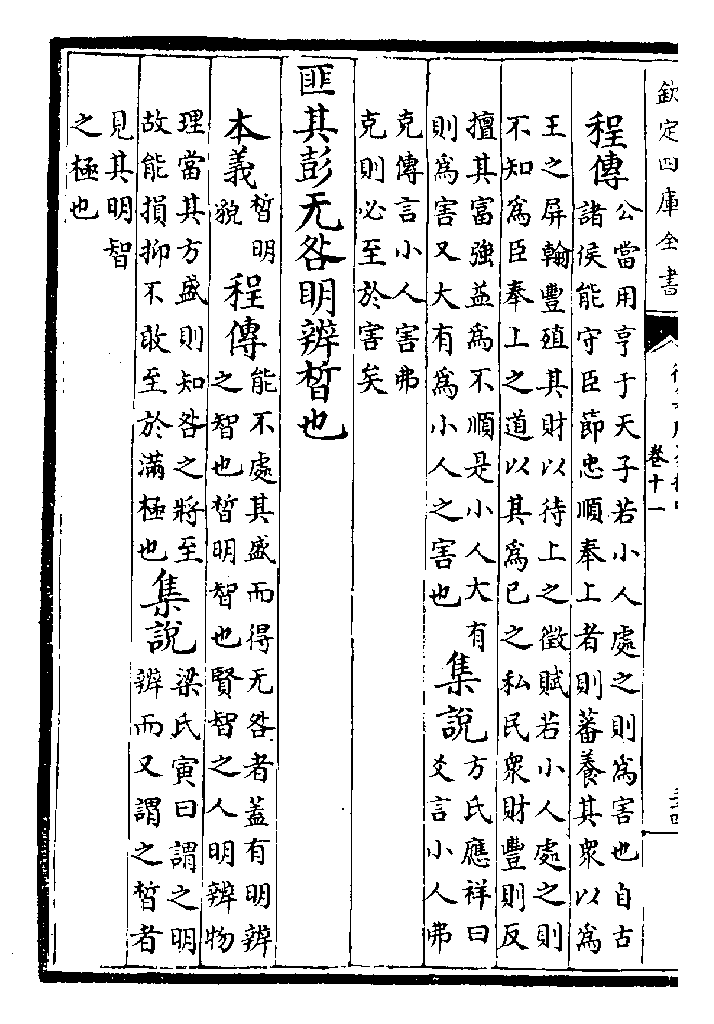 欽定四庫全書
卷十一
程傳
公當用亨于天子若小人處之則為害也自古
諸侯能守臣節忠順奉上者則蕃養其衆以為
王之屏翰豐殖其財以待上之徵賦若小人處之則
不知為臣奉上之道以其為已之私民衆財豐則反
擅其富強益為不順是小人大有
則為害又大有為小人之害也
集說
方氏應祥曰
爻言小人弗
克傳言小人害弗
克則必至於害矣
匪其彭无咎明辨晢也
本義
晢明
貌
程傳
能不處其盛而得无咎者蓋有明辨
之智也晢明智也賢智之人明辨物
理當其方盛則知咎之將至
故能損抑不敢至於滿極也
集說
梁氏寅曰謂之明
辨而又謂之晢者
見其明智
之極也